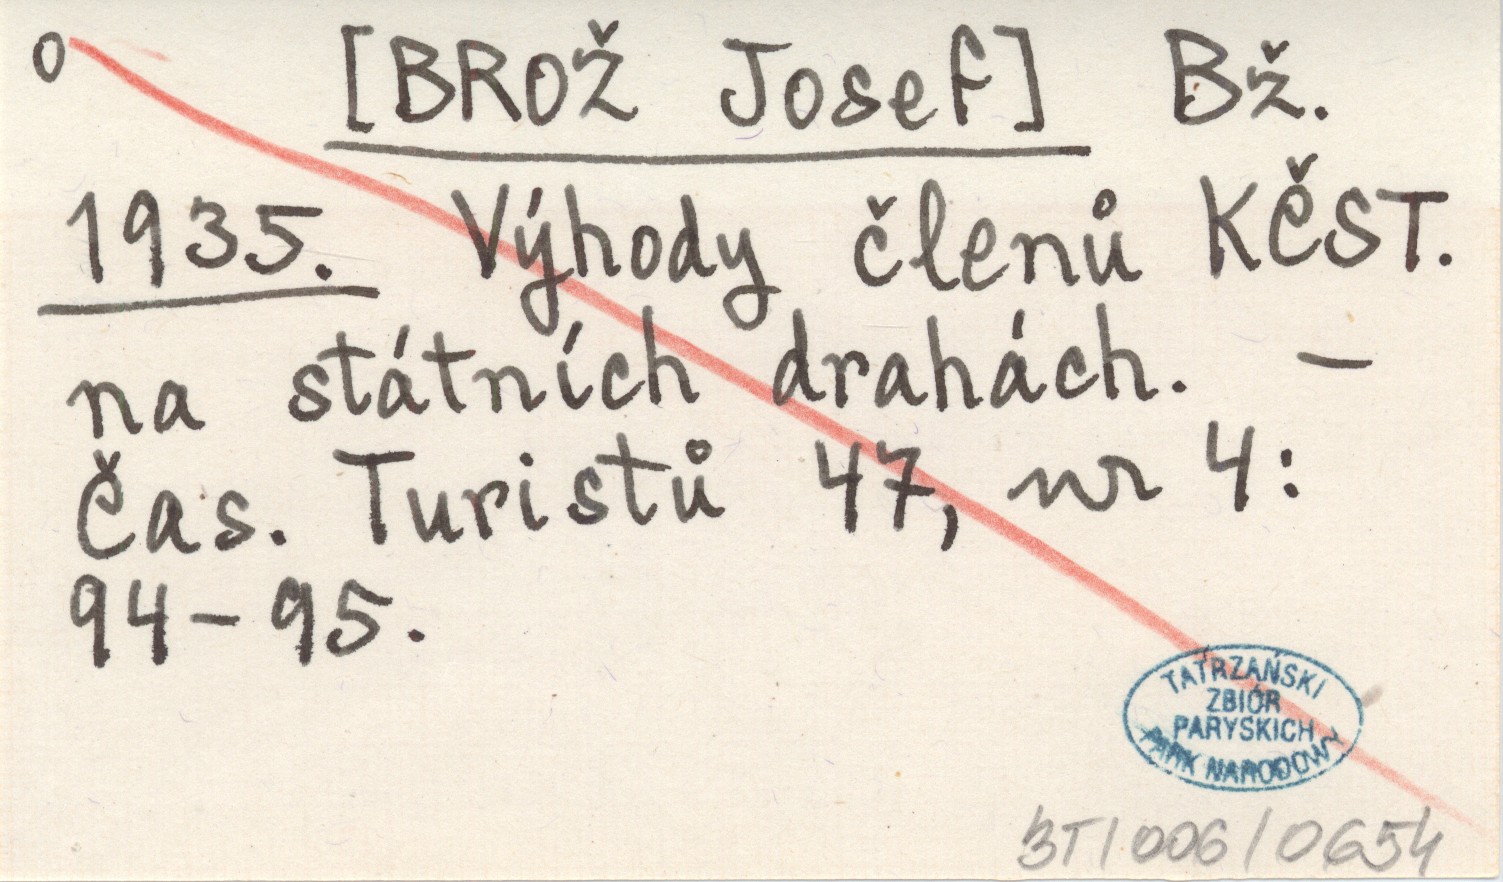 o [BROŽ Josef] Bž.
1935. Výhody členů KČST.
na státních drahách. —
Čas. Turistů 47, nr 4:
94-95.
TATRZAŃSKI
ZBIÓR
PARYSKICH
PARK NARODOWY
BT/006/0654